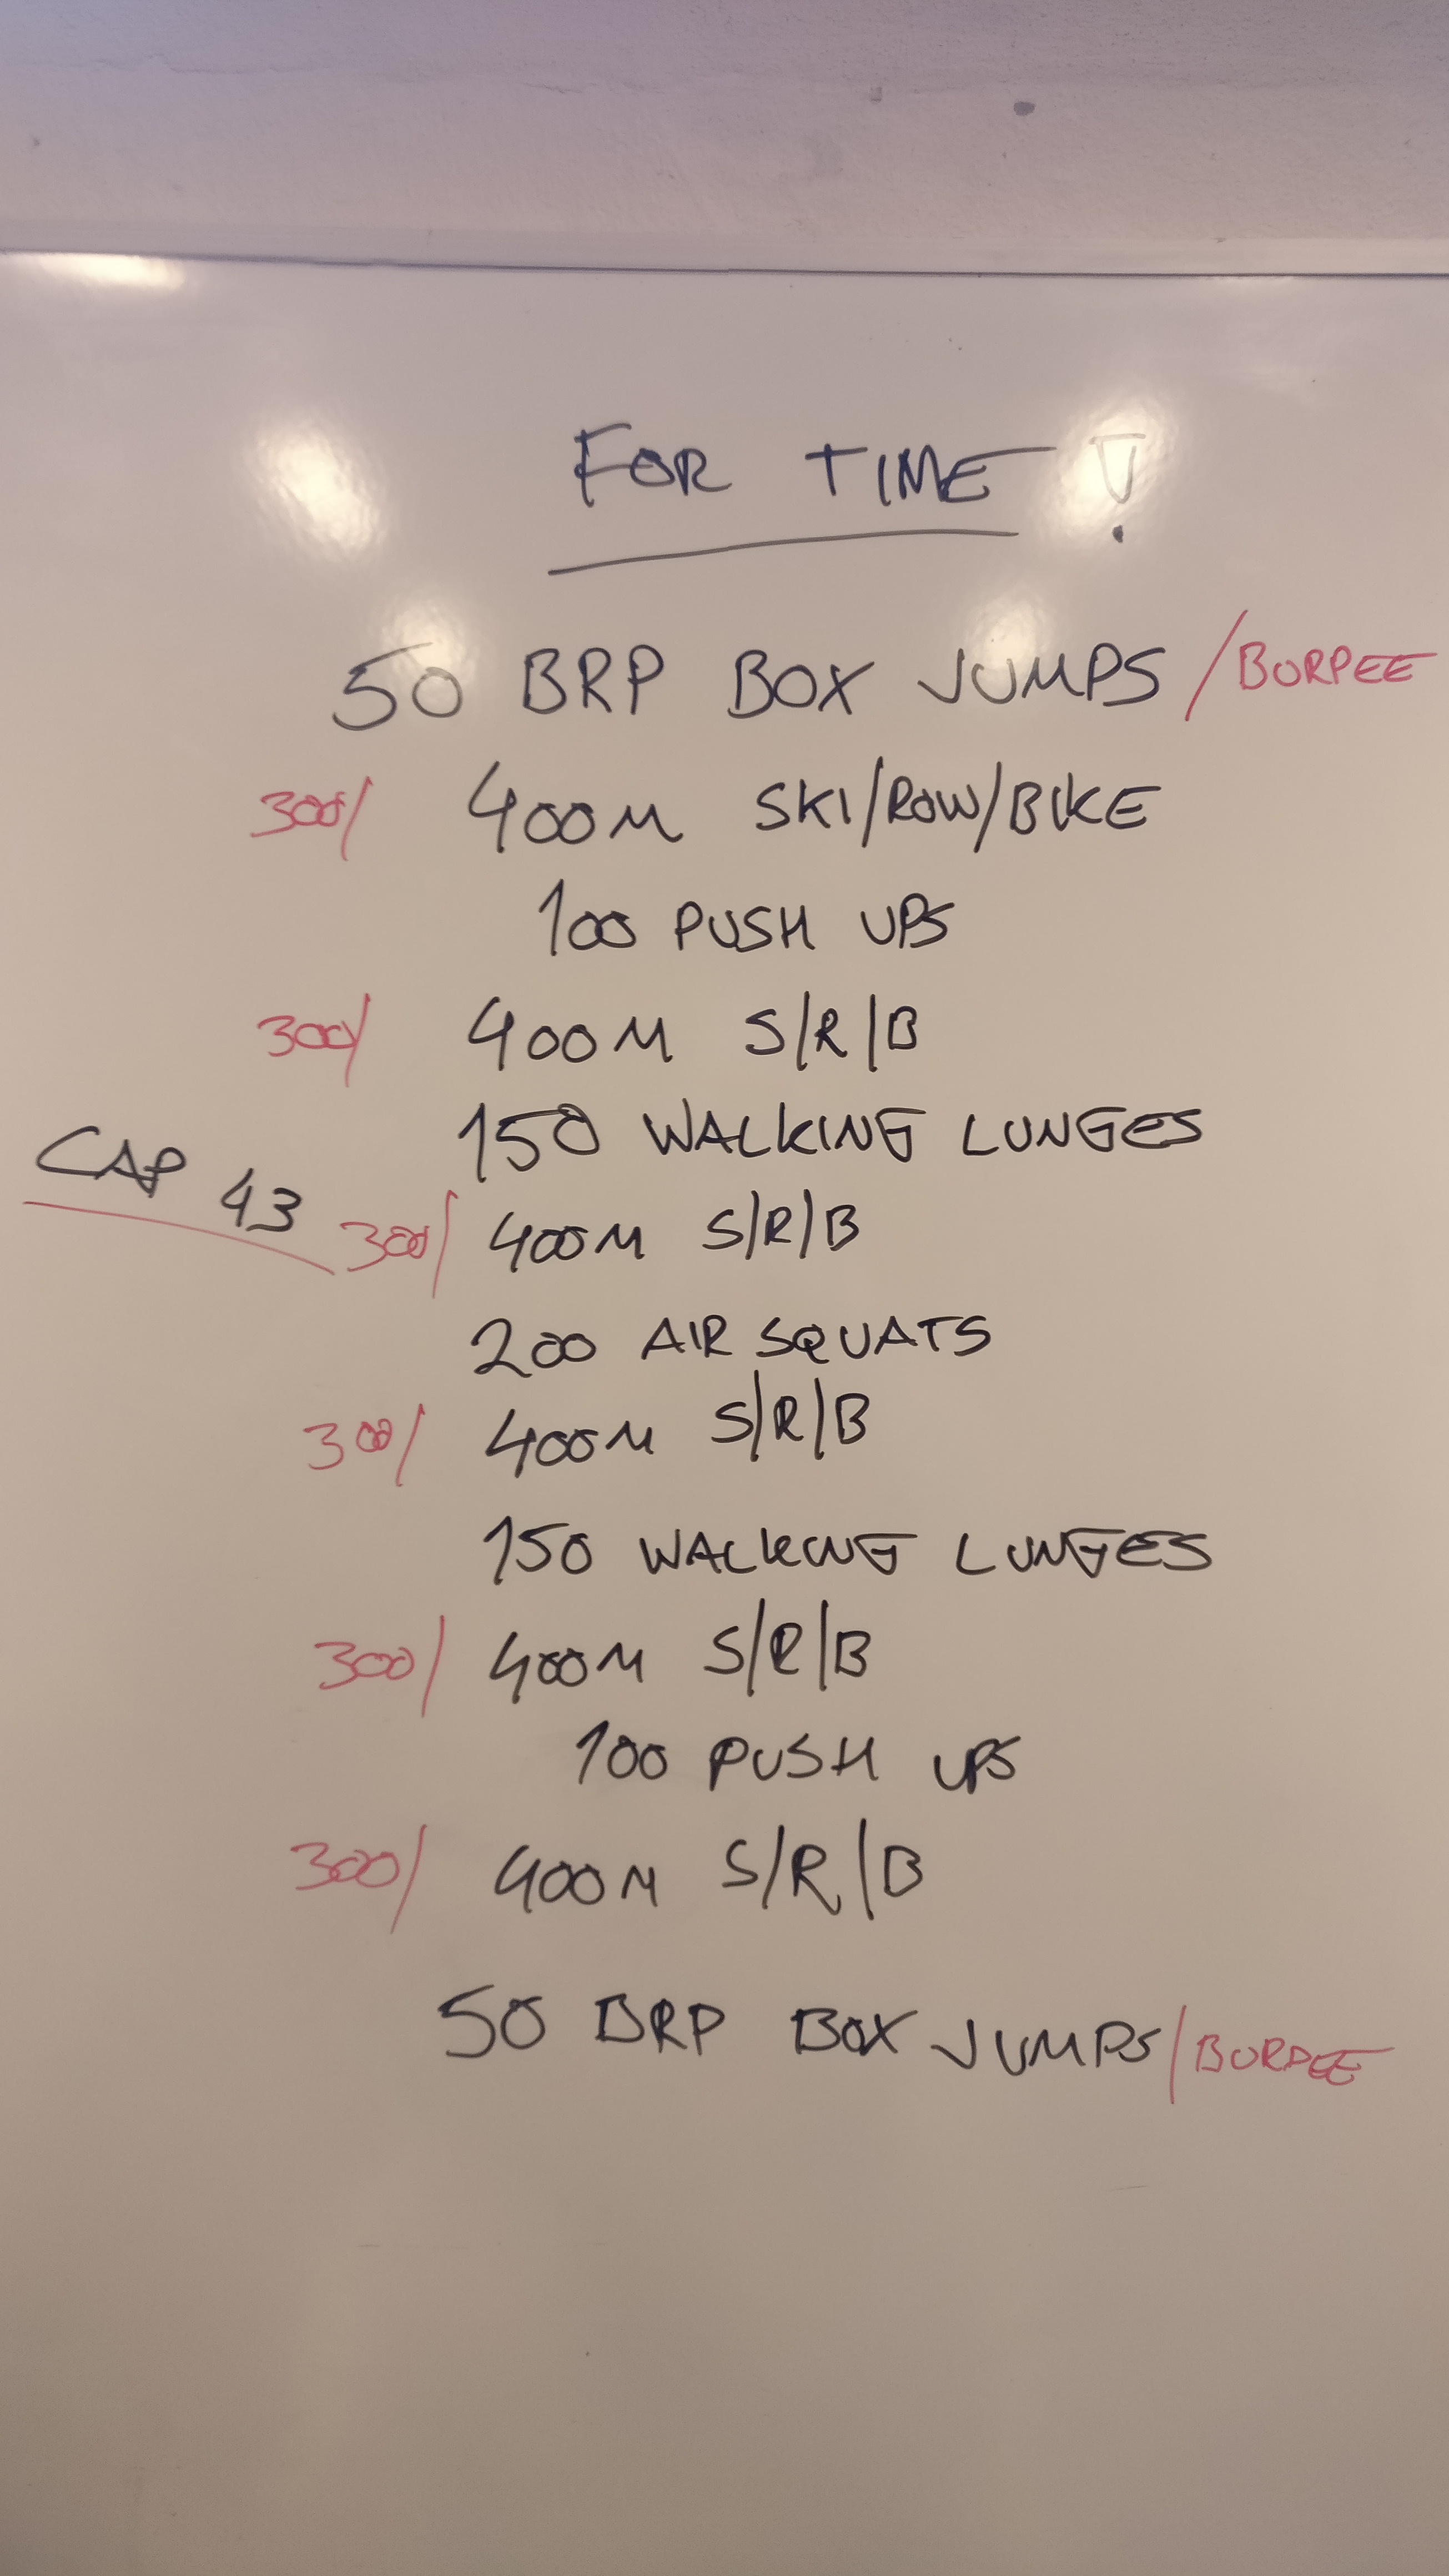 FOR TIME !
50 BRP BOX JUMPS / BURPEE
300/ 400M SKI/ROW/BIKE
100 PUSH UPS
300/ 400M S/R/B
150 WALKING LUNGES
CAP 43
300/ 400M S/R/B
200 AIR SQUATS
300/ 400M S/R/B
150 WALKING LUNGES
300/ 400M S/R/B
100 PUSH UPS
300/ 400M S/R/B
50 BRP BOX JUMPS / BURPEE